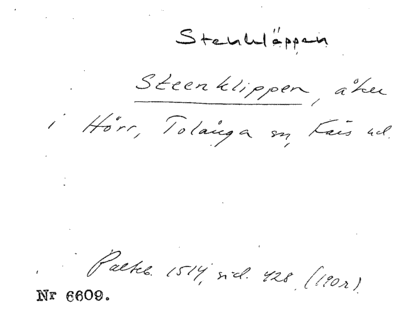 Stenkläppen
Steenklippen, åker
i Hörr, Tolånga sn, Färs hd.
Palteb. 1514, sid. 428 (190r).
Nr 6609.